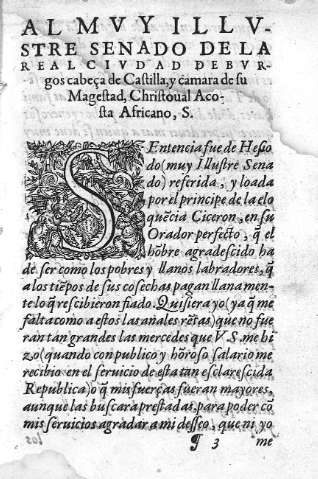 AL MVY ILLV-
STRE SENADO DE LA
REAL CIVDAD DE BVR-
gos cabeça de Castilla, y camara de su
Magestad, Christoual Aco-
sta Africano, S.
SEntencia fue de Hesio
do (muy Illustre Sena
do) referida, y loada
por el principe de la elo
quẽcia Ciceron, en su
Orador perfecto, q̃ el
hõbre agradescido ha
de ser como los pobres y llanos labradores, q̃
a los tiẽpos de sus cosechas pagan llanamen-
te lo q̃ rescibieron fiado. Quisiera yo (ya q̃ me
falta como a estos las anales rẽtas) que no fue
ran tan grandes las mercedes que V.S. me hi
zo (quando con publico y hõroso salario me
recibio en el seruicio de esta tan esclarescida
Republica) o q̃ mis fuerças fueran mayores,
aunque las buscara prestadas, para poder cõ
mis seruicios agradar a mi desseo, que ni yo
¶ 3 me